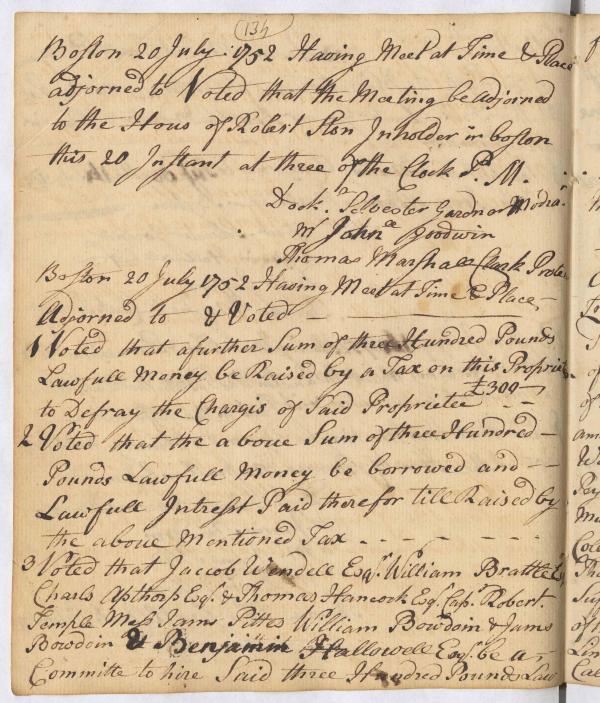 134
Boston 20 July 1752 Having Meet at Time & Place
adjorned to Voted that the Meeting be adjorned
to the Hous of Robert Ston Inholder in boston
this 20 Instant at three of the Clock P. M.
Dock.r Selvester Gardner Modra.r
Mr John Goodwin
Thomas Marshall Clark
Boston 20 July 1752 Having Meet at Time & Place
Adjorned to & Voted
1 Voted that afurther Sum of three Hundred Pounds
Lawfull Money be Raised by a Tax on this Propriete
£300
to Defray the Chargis of Said Proprietee
2 Voted that the aboue Sum of three Hundred
Pounds Lawfull Money be borrowed and
Lawfull Intrest Paid therefor till Raised by
the aboue Mentioned Tax
3 Voted that Jaccob Wendell Esqr William Brattle Es
Charls Apthorp Esqr & Thomas Hancock Esqr Capt Robert
Temple Mess Jams Pittes William Bowdoin & Jams
Bowdoin & Benjamin Hallowell Esqr be a
Committe to hire Said three Hundred Pounds Law